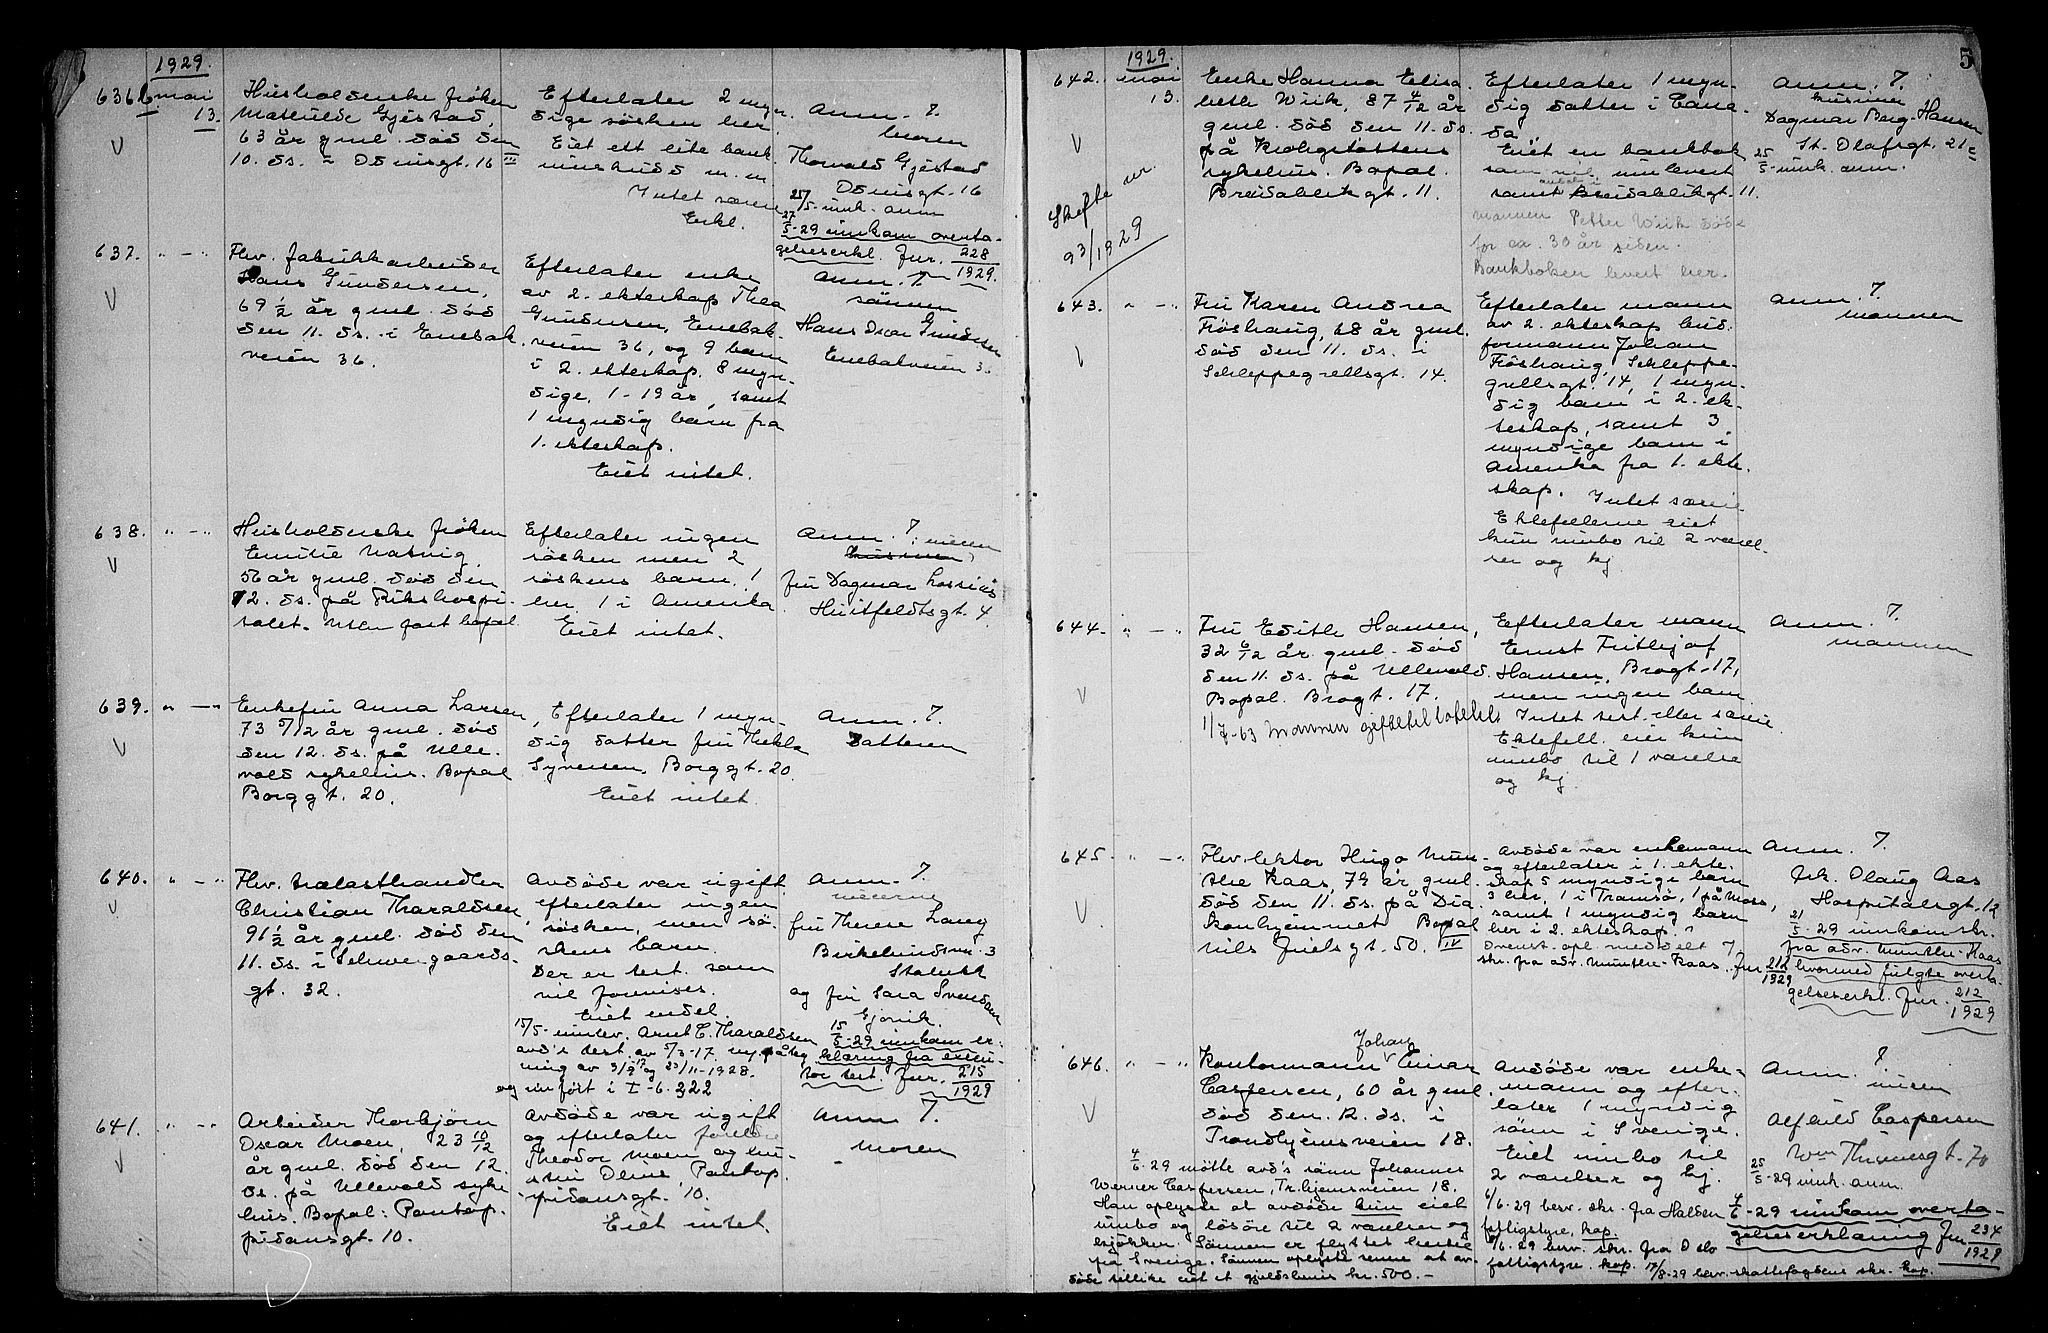 1929.
636. mai 13.
Husholderske frøken
Mathilde Gjestad,
63 år gml. død den
10. ds. - Odinsgt. 16 III
Efterlater 2 myn-
dige søsken her.
Eiet ett lite bank-
innskudd m.m.
Intet særeie
Erkl.
Anm. 7.
broren
Thorvald Gjestad
Odinsgt. 16
25/5 innk. anm
27/5-29 innkom overta-
gelseserkl. Jnr. 228/1929.
637. " - "
Fhv. fabrikkarbeider
Hans Gundersen,
69 1/2 år gml. død
den 11. ds. i Enebak-
veien 36.
Efterlater enke
av 2. ekteskap Thea
Gundersen, Enebak-
veien 36, og 9 barn
i 2. ekteskap, 8 myn-
dige, 1 - 19 år, samt
1 myndig barn fra
1. ekteskap.
Eiet intet.
Anm. 7.
sønnen
Hans Oscar Gundersen
Enebakveien 3.
638. " - "
Husholderske frøken
Emilie Natvig
56 år gml. død den
12. ds. på Rikshospi-
talet. Uten fast bopal
Efterlater ingen
søsken men 2
søskens barn, 1
her, 1 i Amerika.
Eiet intet.
Anm. 7.
niesen
fru Dagmar Lossius
Huitfeldtsgt. 4.
639. " - "
Enkefru Anna Larsen,
73 5/12 år gml. død
den 12. ds. på Ulle-
vold sykehus. Bopal
Borggt. 20.
Efterlater 1 myn-
dig datter fru Thekla
Syversen, Borggt. 20.
Eiet intet.
Anm. 7.
datteren
640. " - "
Fhv. trælasthandler
Christian Tharaldsen,
91 1/2 år gml. død den
11. ds. i Schweigaards-
gt. 32.
Avdøde var ugift
efterlater ingen
søsken, men sø-
skens barn.
Der er test. som
vil forevises.
Eiet endel.
15/5- innlev. Arnt C. Tharaldsen
avd's test. av 5/3-17 m/påteg-
ning av 3/9 17 og 23/11-1928.
og innført i I - 6. 322
Anm. 7.
niecerne
fru Therese Lang
Birkelundsvei 3
Stabekk
og fru Sara Svendsen
Gjøvik.
15/5-29 innkom er-
klæring fra execu-
tor test. Jnr. 215/1929
641. " - "
Arbeider Thorbjørn
Oscar Moen, 23 10/12
år gml. død den 12.
ds. på Ullevold syke
hus. Bopal: Pontop-
pidansgt. 10.
Avdøde var ugift
og efterlater foreldre
Theodor Moen og hu-
stru Oline, Pontop-
pidansgt. 10.
Eiet intet.
Anm. 7.
moren
5
1929.
642. mai 13.
Skifte nr. 93/1929
Enke Hanna Elisa-
beth Wiik, 87 4/12 år
gml. død den 11. ds.
på Krohgstøttens
sykehus. Bopal.
Breidablikgt. 11.
Efterlater 1 myn-
dig datter i Cana-
da
Eiet en bankbok
som vil innlevert
samt Breidablikgt. 11.
mannen Petter Wiik død
for ca. 30 år siden.
Bankboken levert her.
Anm. 7.
kusinen
Dagmar Borg-Hansen
St. Olafsgt. 21c
25/5-innk. anm.
643. " - "
Fru Karen Andrea
Frøshaug, 68 år gml.
død den 11. ds. i
Schleppegrellsgt. 14.
Efterlater mann
av 2. ekteskap bud-
formann Johan
Frøshaug, Schleppe-
grellsgt. 14, 1 myn-
dig barn i 2. ek-
teskap, samt 3
myndige barn i
Amerika fra 1. ekte-
skap. Intet særeie
Ektefellerne eiet
kun innbo til 2 værel-
ser og kj.
Anm. 7.
mannen
644. " - "
Fru Edith Hansen,
32 6/12 år gml. død
den 11. ds. på Ullevold.
Bopal. Brogt. 17.
1/7-63 Mannen
Efterlater mann
Ernst Fritjof
Hansen, Brogt. 17,
men ingen barn
Intet test. eller særeie
Ektefell. eier kun
innbo til 1 værelse
og kj.
Anm. 7.
mannen
645. " - "
Fhv. lektor Hugo Mun-
the Kaas, 79 år gml.
død den 11. ds. på Dia-
konhjemmet Bopal
Nils Juelsgt. 50. IV
Avdøde var enkemann
og efterlater i 1. ekte-
skap 5 myndige barn
3 her, 1 i Tromsø, 1 på Moss,
samt 1 myndig barn
her i 2. ekteskap.
Ovenst. opl. meddelt
skr. fra adv. Munthe-Kaas. Jnr 212/1929
Anm. 7.
frk. Olaug Aas
Hospitalsgt. 12
21/5-29 innkom skr.
fra adv. Munthe-Kaas
hvormed fulgte overta-
gelseserkl. Jnr. 212/1929
646. " - "
Kontormann Johan Einar
Caspersen, 60 år gml.
død den. 12. ds. i
Trondhjemsveien 18.
4/6-29 møtte avd's sønn Johannes
Werner Caspersen, Tr.hjemsveien 18.
Han oplyste at avdøde kun eiet
innbo og løsøre til 2 værelser og
kjøkken. Sønnen er flyttet hertil
fra Sverige. Sønnen oplyste senere at av-
døde tillike eiet et gjeldsbevis kr. 500.-
Avdøde var enke-
mann og efter-
later 1 myndig
sønn i Sverige.
Eiet innbo til
2 værelser og kj.
6/6-29 besv. skr. fra Halden
fattigstyre, kop.
8/6-29 besv. skr. fra Oslo
fattigstyre. kop. 17/8-29 besv. skattefogdens skr. kop.
Anm. 7.
niesen
Alfhild Caspersen
Wm Thranesgt. 70
25/5-29 innk. anm.
4/6-29 innkom overta-
gelseserklæring Jnr 234/1929